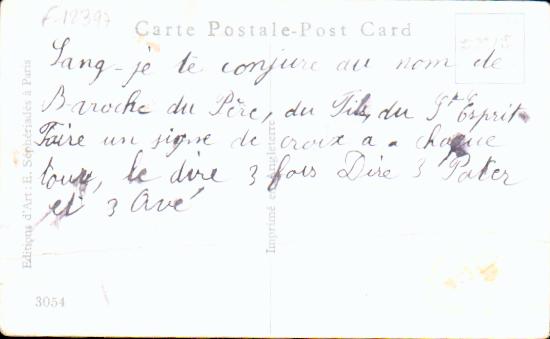 F-12397
Carte Postale-Post Card
Sang-je te conjure au nom de
Baroche du Père, du Fils, du St Esprit
Faire un signe de croix a chaque
tour, le dire 3 fois Dire 3 Pater
et 3 Avé
Editions d'Art: E. à Paris
Imprimé en Angleterre
3054